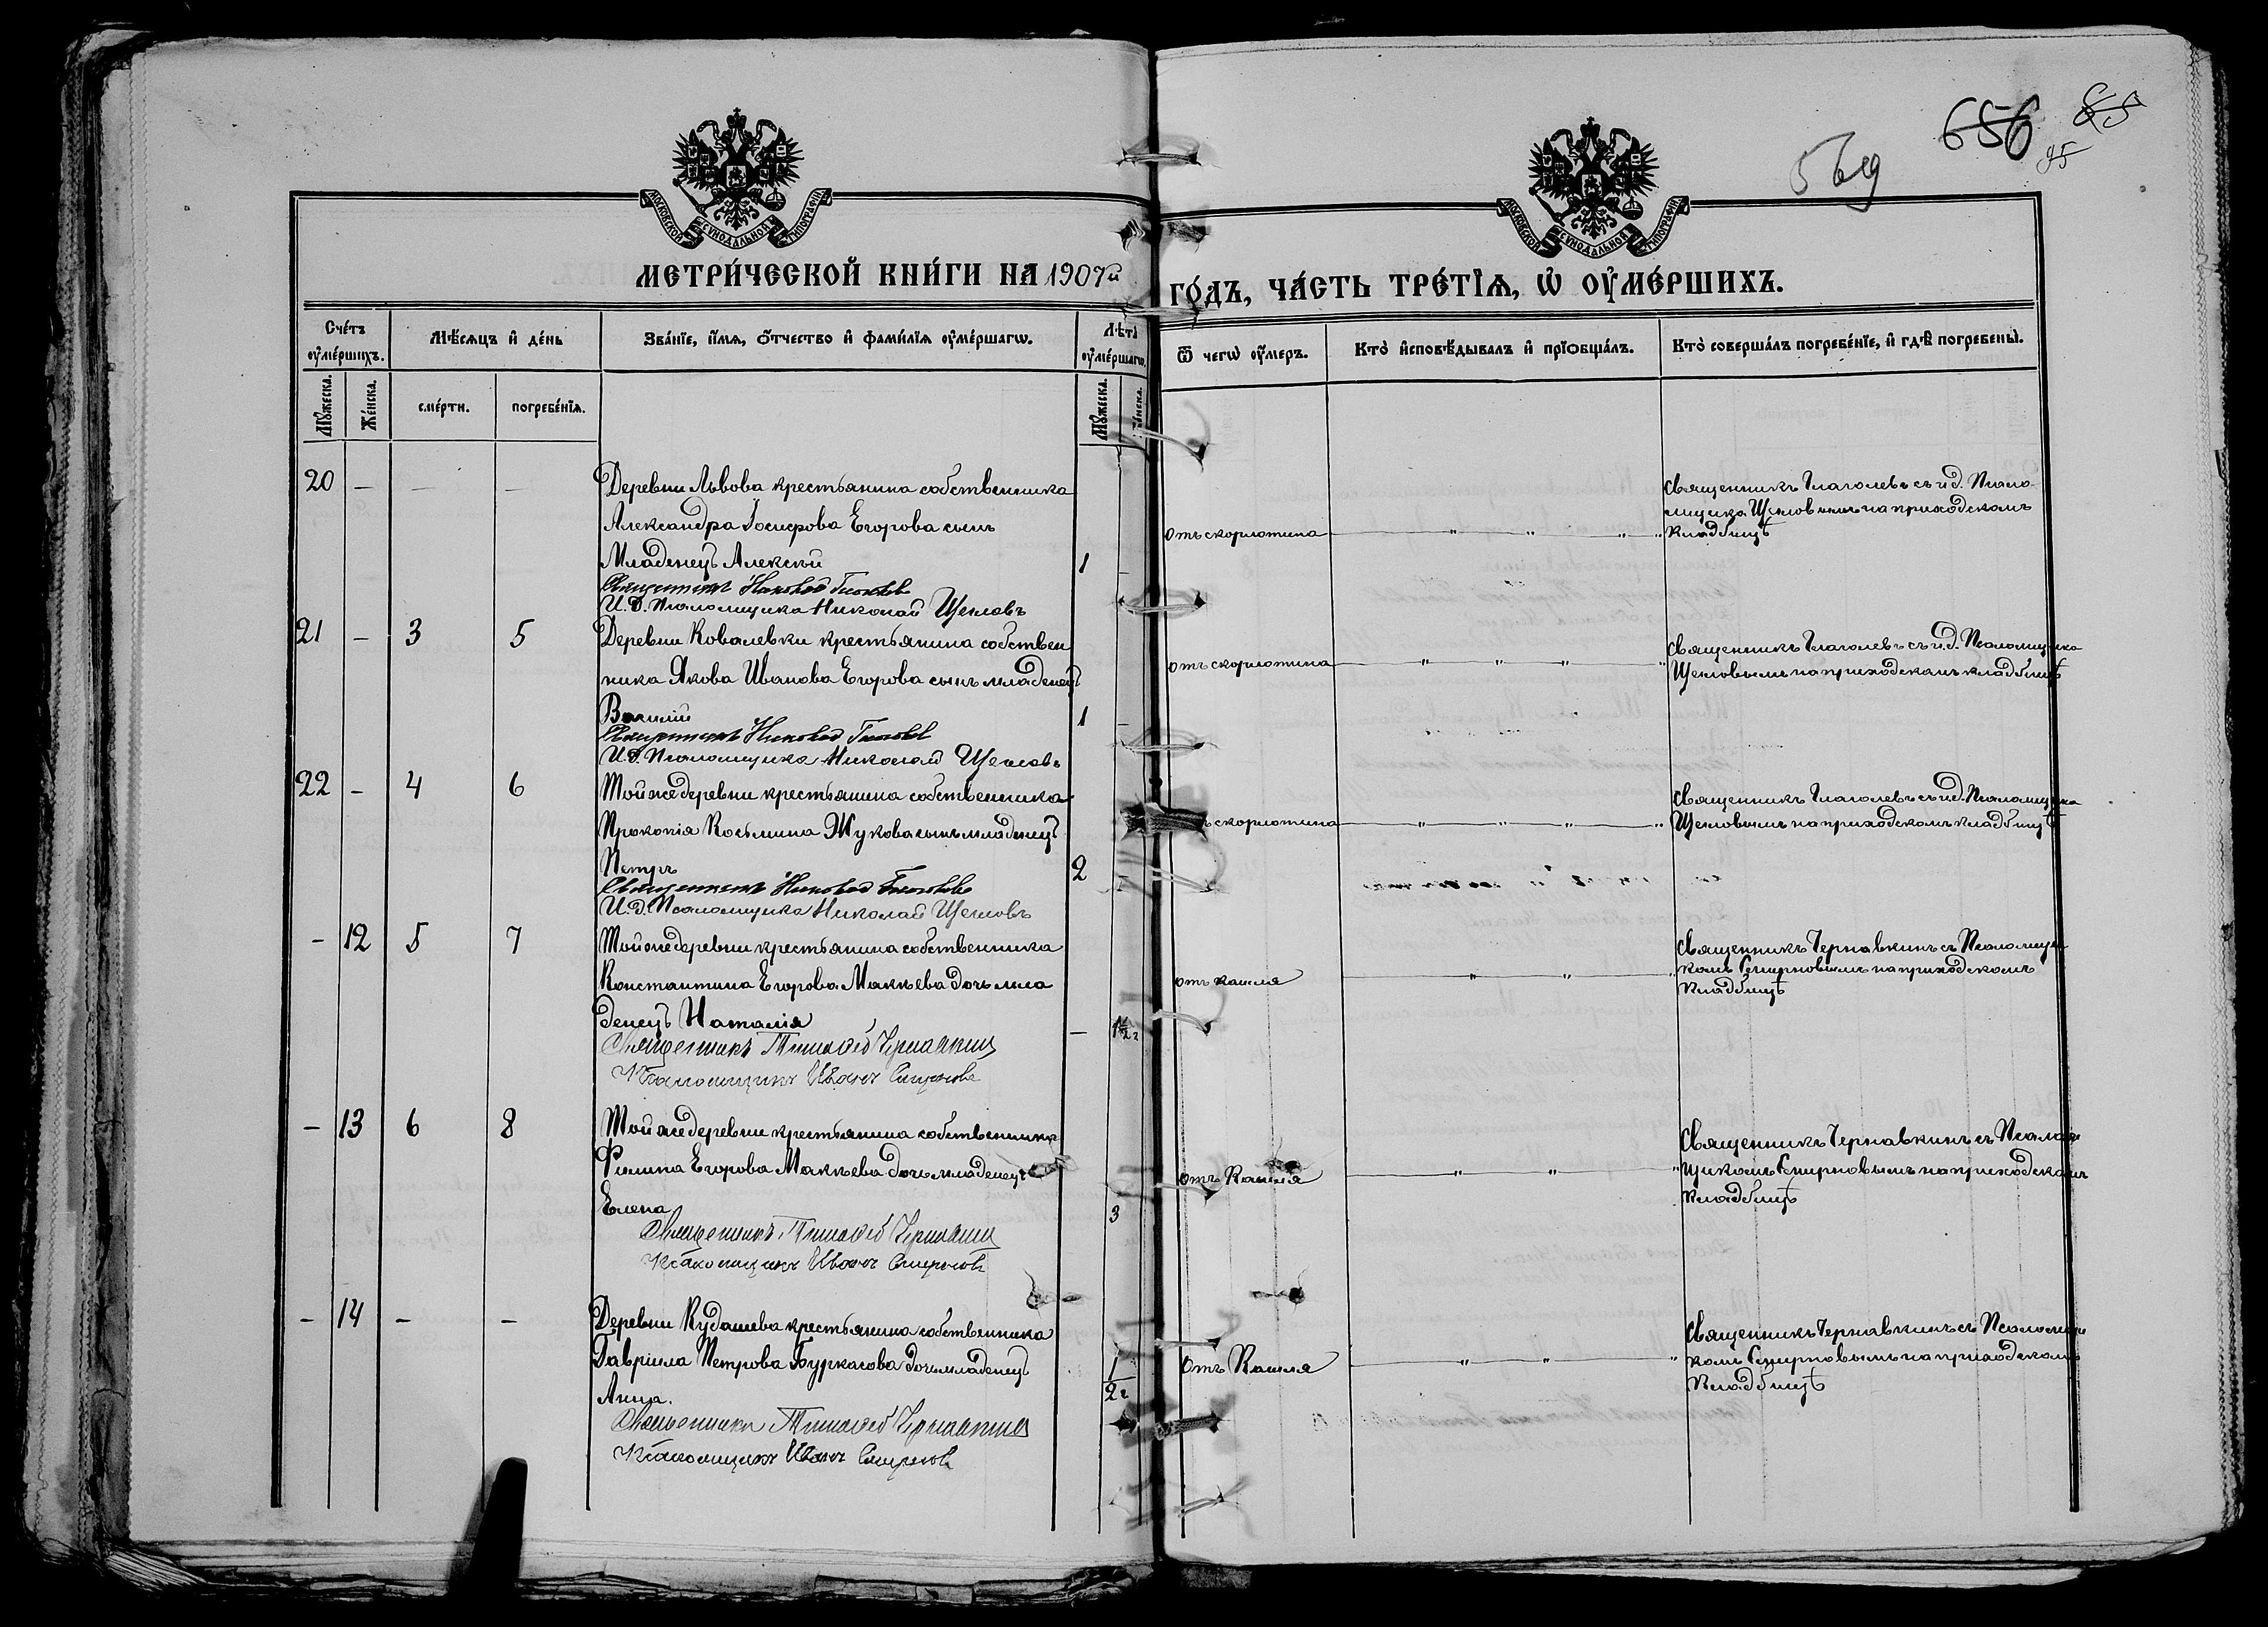 569
656
85
95
МОСКОВСКОЙ СѴНОДАЛЬНОЙ ТИПОГРАФІИ
МОСКОВСКОЙ СѴНОДАЛЬНОЙ ТИПОГРАФІИ
МЕТРИ́ЧЕСКОЙ КНИ́ГИ НА 1907й
ГО́ДЪ, ЧА́СТЬ ТРЕ́ТІѦ, Ѡ ОУ҆МЕ́РШИХЪ.
Сче́тъ оу҆ме́ршихъ.
Мѣ́сѧцъ и҆ де́нь
Зва́нїе, и҆́мѧ, ѻ҆́тчество и҆ фами́лїѧ оу҆ме́ршагѡ.
Лѣ́та оу҆ме́ршагѡ.
Ѿ чегѡ̀ оу҆́меръ.
Кто̀ и҆сповѣ́дывалъ и҆ прїѡбща́лъ.
Кто̀ соверша́лъ погребе́нїе, и҆ гдѣ̀ погребены̀.
Мꙋ́жеска.
Же́нска.
сме́рти.
погребе́нїѧ.
Мꙋ́жеска.
Же́нска.
20 — — —
Деревни Львова крестьянина собственника
Александра Іосифова Егорова сынъ
Младенецъ Алексѣй
1 —
Священникъ Николай Глаголевъ
И.д. Псаломщика Николай Щегловъ
отъ скорлотина
" " " "
Священникъ Глаголевъ съ и.д. Псало-
мщика Щегловымъ на приходскомъ
кладбищѣ
21 — 3 5
Деревни Ковалевки крестьянина собствен
ника Якова Иванова Егорова сынъ младенецъ
Василій
1 —
Священникъ Николай Глаголевъ
И.д. Псаломщика Николай Щегловъ
отъ скорлотина
" " " "
Священникъ Глаголевъ съ и.д. Псаломщика
Щегловымъ на приходскомъ кладбищѣ
22 — 4 6
Той же деревни крестьянина собственника
Прокопія Косьмина Жукова сынъ младенецъ
Петръ
2 —
Священникъ Николай Глаголевъ
И.д. Псаломщика Николай Щегловъ
скорлотина
" " " "
Священникъ Глаголевъ съ и.д. Псаломщика
Щегловымъ на приходскомъ кладбищѣ
— 12 5 7
Той же деревни крестьянина собственника
Константина Егорова Макѣева дочь мла
денецъ Наталія
— 1½ г
Священникъ Тимофей Чернавкинъ
Псаломщикъ Иванъ Смирновъ
отъ кашля
" " "
Священникъ Чернавкинъ съ Псаломщи
комъ Смирновымъ на приходскомъ
кладбищѣ
— 13 6 8
Той же деревни крестьянина собственника
Филипа Егорова Макѣева дочь младенецъ
Елена
3
Священникъ Тимофей Чернавкинъ
Псаломщикъ Иванъ Смирновъ
отъ Кашля
" " "
Священникъ Чернавкинъ съ Псалом
щикомъ Смирновымъ на приходскомъ
кладбищѣ
— 14 — —
Деревни Кудашева крестьянина собственника
Гавріила Петрова Буркасова дочь младенецъ
Анна.
1/2 г
Священникъ Тимофей Чернавкинъ
Псаломщикъ Иванъ Смирновъ
Отъ Кашля
" " "
Священникъ Чернавкинъ съ Псаломщи
комъ Смирновымъ на приходскомъ
Кладбищѣ